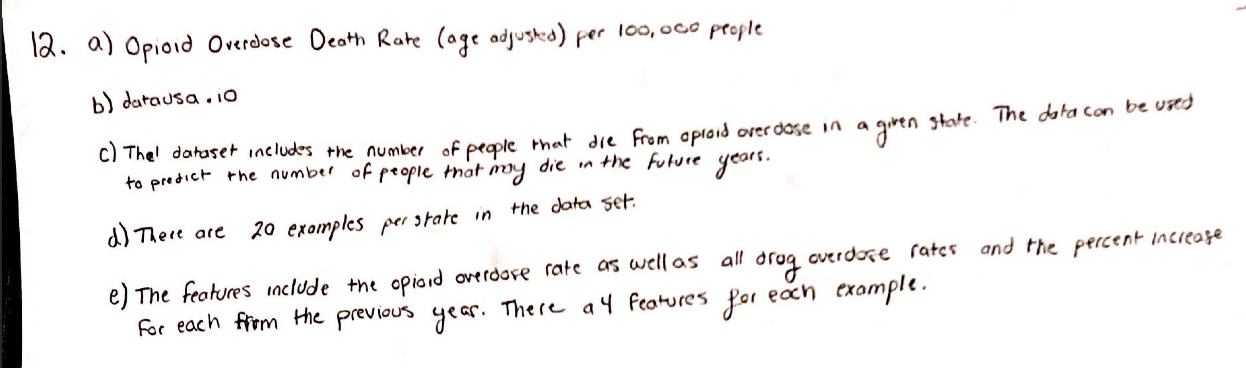 12. a) Opioid Overdose Death Rate (age adjusted) per 100,000 people
b) datausa.io
c) The! dataset includes the number of people that die from opioid overdose in a given state. The data can be used
to predict the number of people that may die in the future years.
d) There are 20 examples per state in the data set.
e) The features include the opioid overdose rate as well as all drug overdose rates and the percent increase
for each from the previous year. There a 4 features for each example.